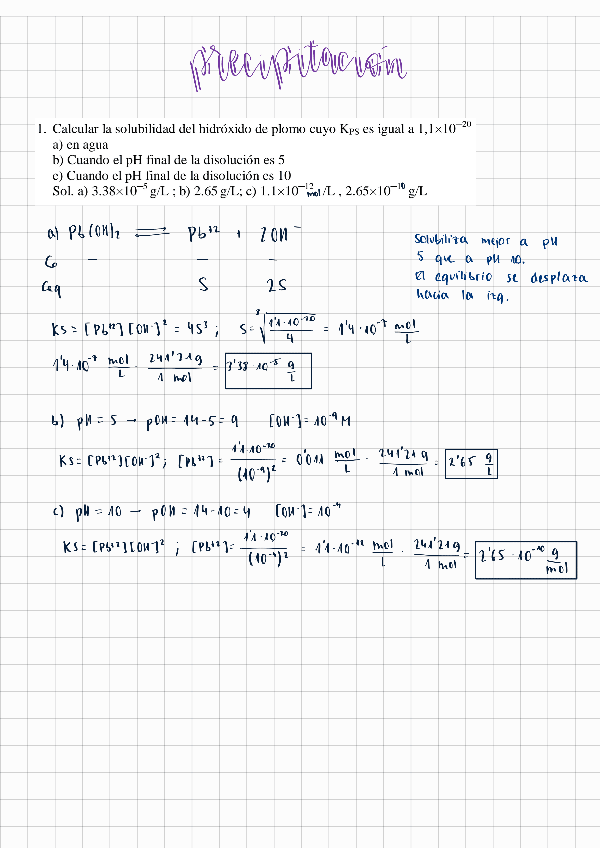 precipitación
1. Calcular la solubilidad del hidróxido de plomo cuyo K_PS es igual a 1,1×10⁻²⁰
a) en agua
b) Cuando el pH final de la disolución es 5
c) Cuando el pH final de la disolución es 10
Sol. a) 3.38×10⁻⁵ g/L ; b) 2.65 g/L; c) 1.1×10⁻¹² mol/L , 2.65×10⁻¹⁰ g/L
a) Pb(OH)₂ ⇌ Pb⁺² + 2OH⁻
Co – – –
Ceq S 2S
Solubiliza mejor a pH
5 que a pH 10.
El equilibrio se desplaza
hacia la izq.
KS = [Pb⁺²][OH⁻]² = 4S³ ; S = ³√(1'1·10⁻²⁰ / 4) = 1'4·10⁻⁷ mol/L
1'4·10⁻⁷ mol/L · 241'21g / 1 mol = 3'38·10⁻⁵ g/L
b) pH = 5 → pOH = 14-5 = 9 [OH⁻] = 10⁻⁹ M
KS = [Pb⁺²][OH⁻]² ; [Pb⁺²] = 1'1·10⁻²⁰ / (10⁻⁹)² = 0'011 mol/L · 241'21 g / 1 mol = 2'65 g/L
c) pH = 10 → pOH = 14-10 = 4 [OH⁻] = 10⁻⁴
KS = [Pb⁺²][OH⁻]² ; [Pb⁺²] = 1'1·10⁻²⁰ / (10⁻⁴)² = 1'1·10⁻¹² mol/L · 241'21g / 1 mol = 2'65·10⁻¹⁰ g/mol